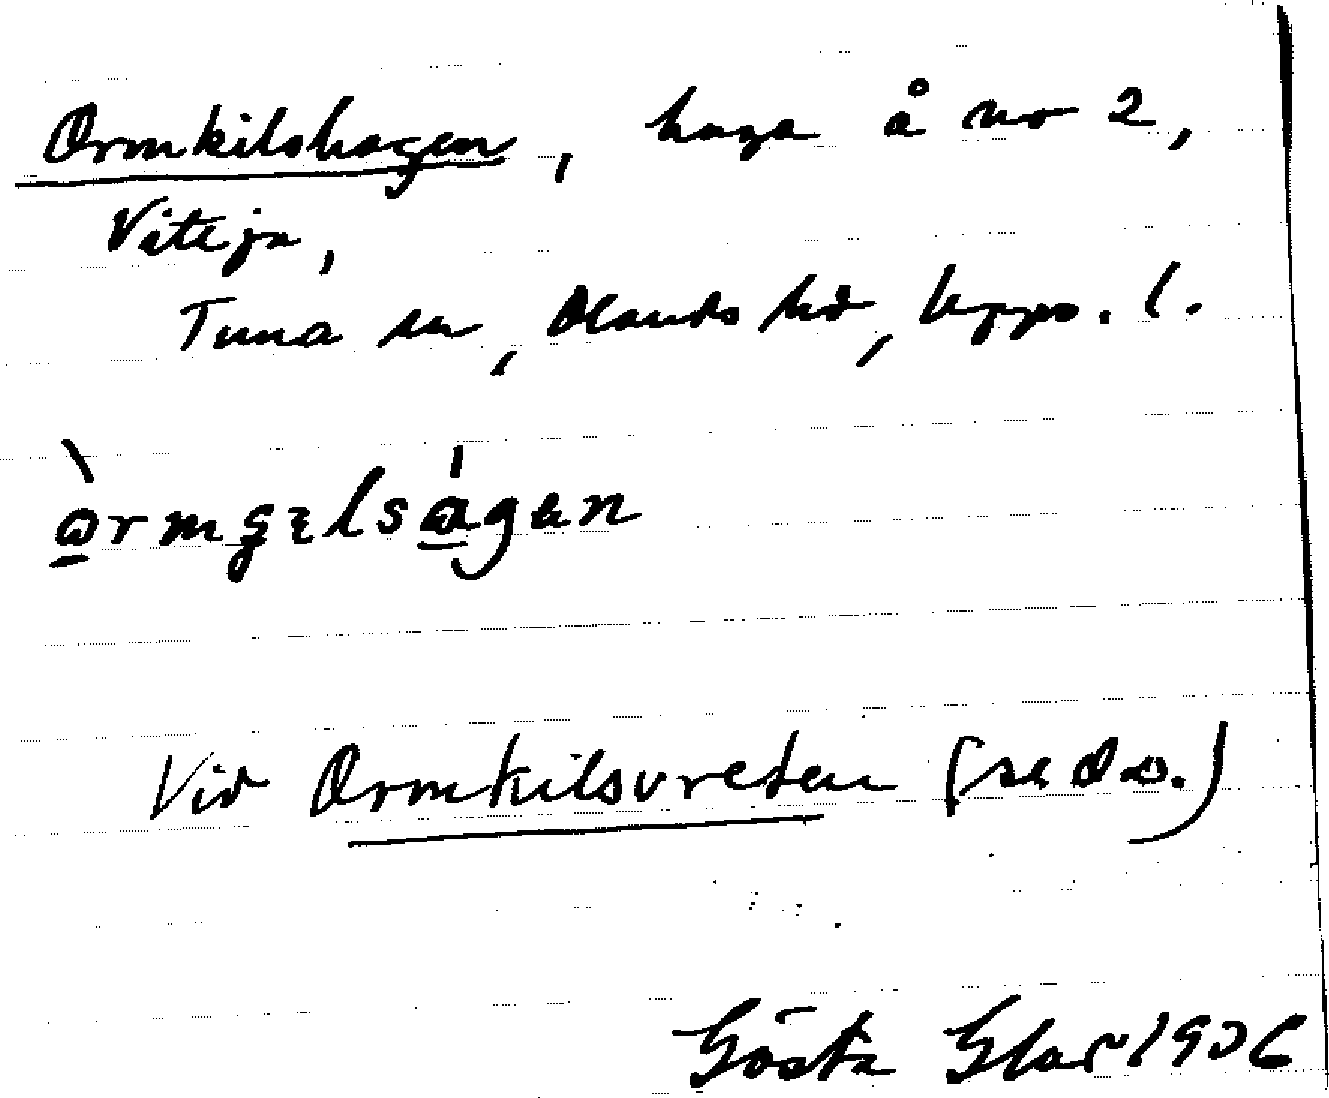 Ormkilshagen, haga å no 2,
Viteja,
Tuna sn, Olands hd, Upps. l.
òrmgelságen
Vid Ormkilsvreten (se d. o.)
Gösta 1936